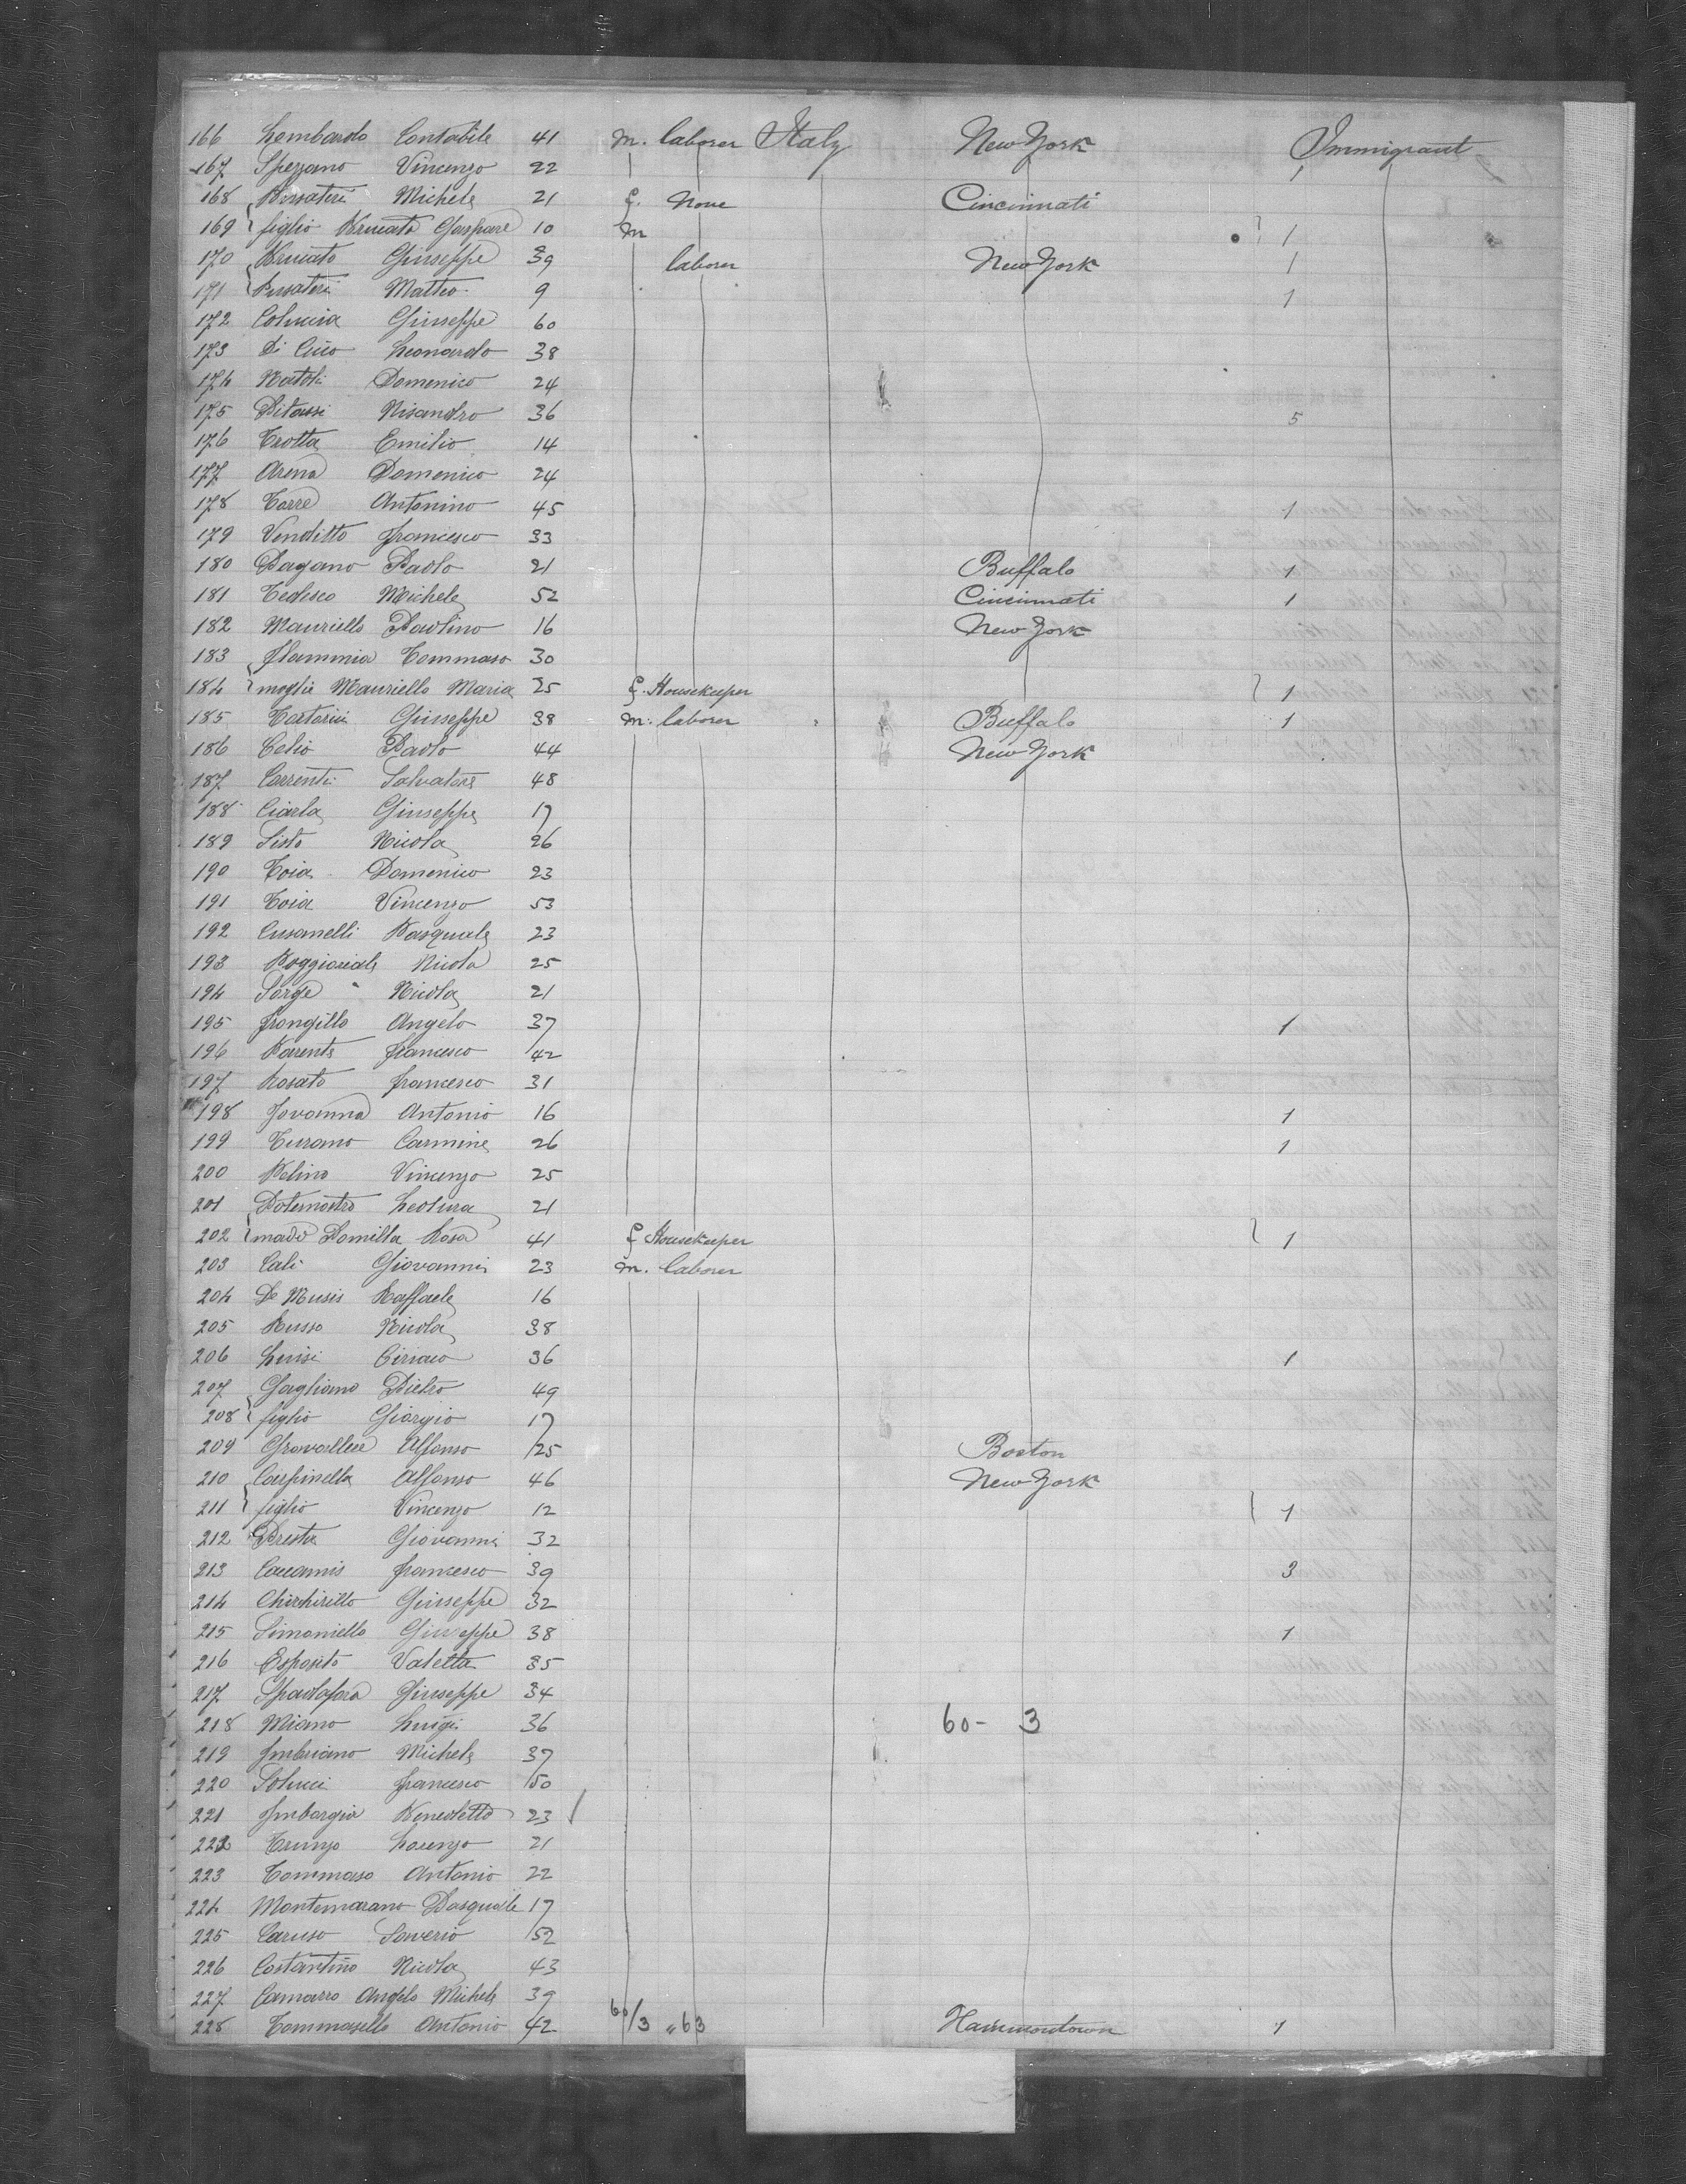 166 Lombardo Contabile 41 m. laborer Italy New York Immigrant
167 Spezzano Vincenzo 22 1
168 Michele 21 f. None Cincinnati
169 figlio Gaspare 10 m 1
170 Giuseppe 39 laborer New York 1
171 Matteo 9 1
172 Giuseppe 60
173 Di Cicco Leonardo 38
174 Natoli Domenico 24
175 Nisandro 36 5
176 Trotta Emilio 14
177 Arena Domenico 24
178 Torre Antonino 45 1
179 Venditto Francesco 33
180 Pagano Paolo 21 Buffalo 1
181 Tedesco Michele 52 Cincinnati 1
182 Mauriello Paolino 16 New York
183 Flamminia Tommaso 30
184 moglie Mauriello Maria 25 f. Housekeeper 1
185 Giuseppe 38 m. laborer Buffalo 1
186 Celio Paolo 44 New York
187 Correnti Salvatore 48
188 Ciarla Giuseppe 17
189 Sisto Nicola 26
190 Toia Domenico 23
191 Toia Vincenzo 53
192 Cusanelli Pasquale 23
193 Nicola 25
194 Sorge Nicola 21
195 Frongillo Angelo 37 1
196 Parente Francesco 42
197 Rosato Francesco 31
198 Jovanna Antonio 16 1
199 Turano Carmine 26 1
200 Pelino Vincenzo 25
201 21
202 Rosa 41 f Housekeeper 1
203 Cali Giovanni 23 m. laborer
204 De Musis Raffaele 16
205 Russo Nicola 38
206 Luisi Ciriaco 36 1
207 Gagliano Pietro 49
208 figlio Giorgio 17
209 Alfonso 25 Boston
210 Carpinella Alfonso 46 New York
211 figlio Vincenzo 12 1
212 Presta Giovanni 32
213 Francesco 39 3
214 Chirchirillo Giuseppe 32
215 Simoniello Giuseppe 38 1
216 Esposito Valetta 35
217 Spadafora Giuseppe 34
218 Miano Luigi 36 60- 3
219 Imbriano Michele 37
220 Francesco 50
221 Imborgia Benedetto 23 /
222 Trunzo Lorenzo 21
223 Tommaso Antonio 22
224 Montemarano Pasquale 17
225 Caruso Saverio 52
226 Costantino Nicola 43
227 Camarro Angelo Michele 39
228 Tommasello Antonio 42 60/3 "63 Hammontown 1